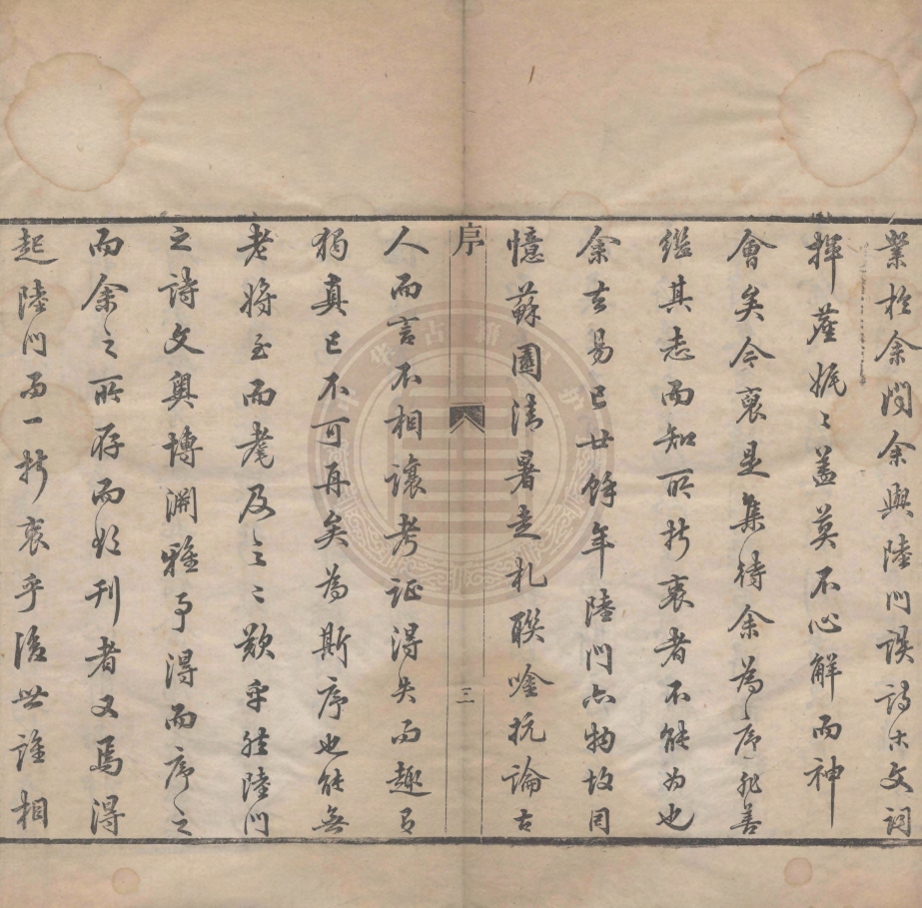 業於余間余與陸門談詩古文詞
揮麈娓〻蓋莫不心解而神
會矣今裒是集待余為之序非善
繼其志而知所折衷者不能為也
余去易已廿餘年陸門亦物故同
憶蘇園清暑走札聯唫抗論古
序
三
人而言不相讓考証得失而趣有
獨真已不可再矣為斯序也能無
老將至而耄及之之歎乎雖陸門
之詩文奧博淵雅予得而序之
而余之所存而欲刊者又焉得
起陸門而一折衷乎後世誰相